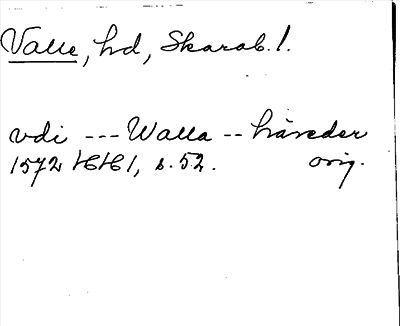 Valle, hd, Skarab. l.
vdi --- Walla -- häreder
1572 1/6 1/6 1, s. 52. orig.